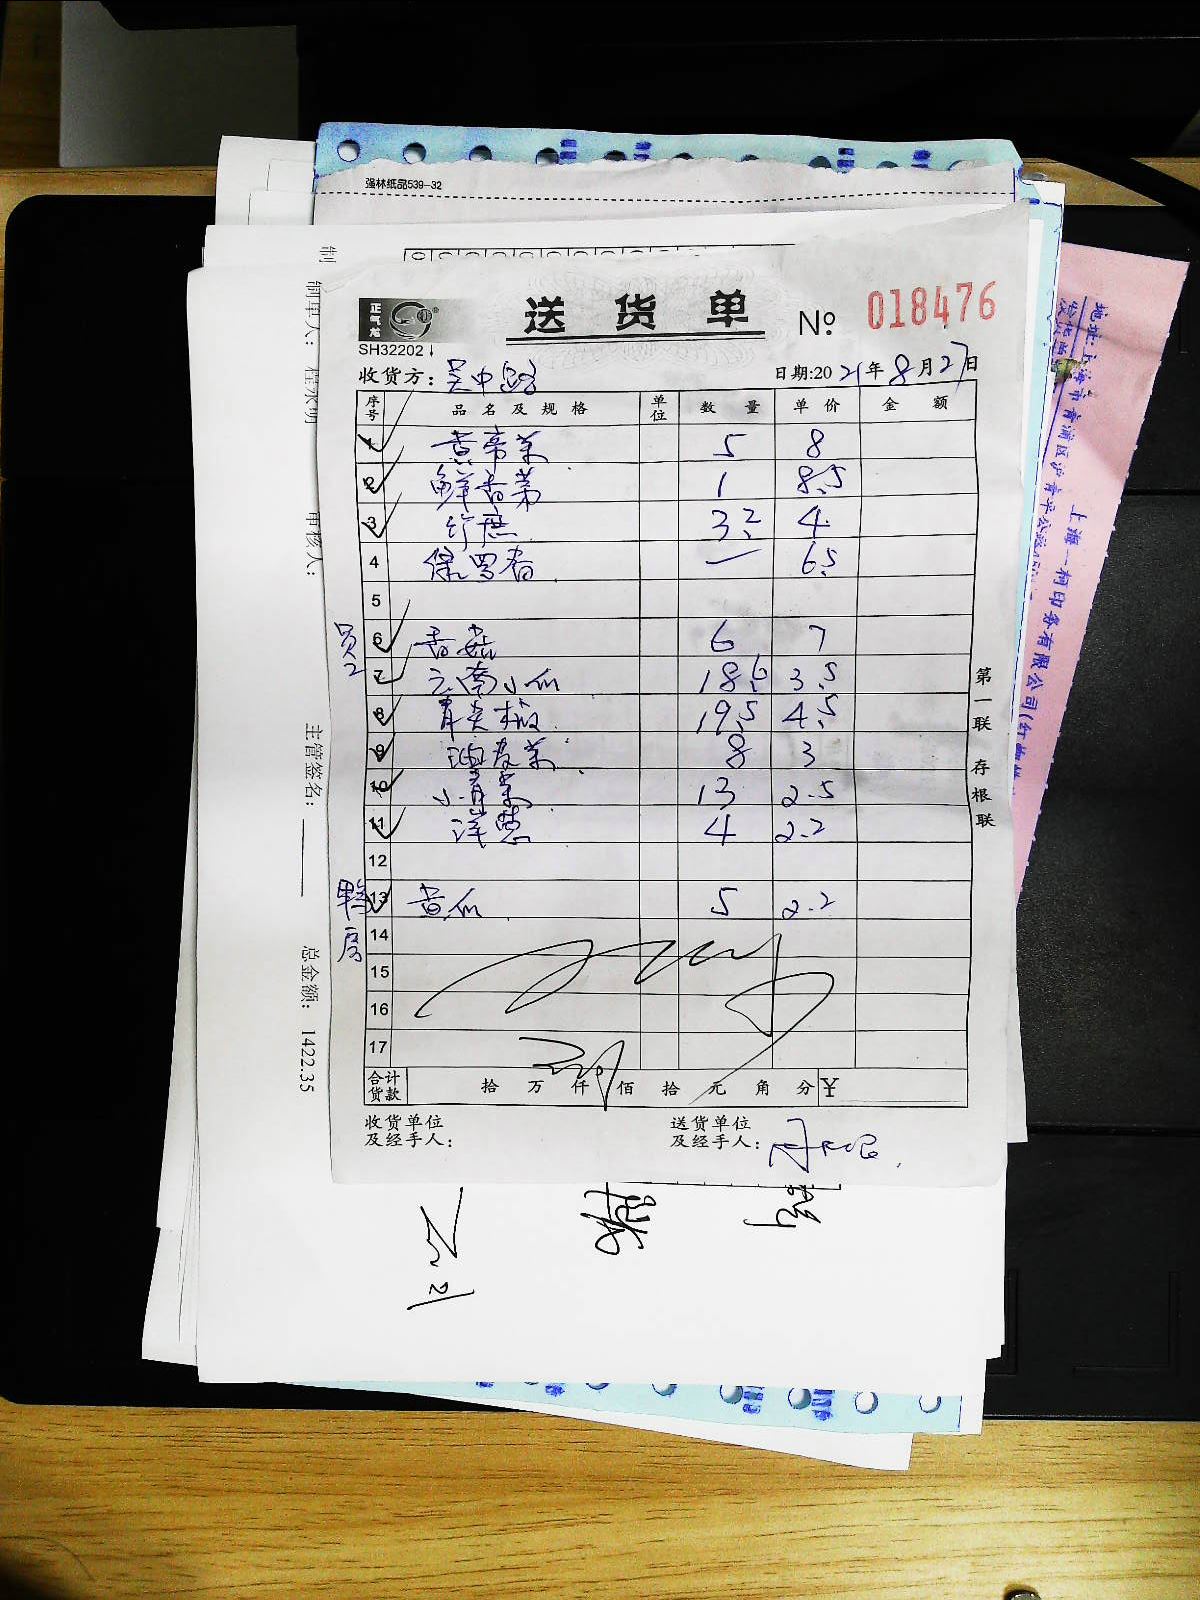 强林纸品539-32
正气龙
送货单 № 018476
SH32202↓
收货方：吴中路 日期:2021年8月27日
序号 品名及规格 单位 数量 单价 金额
1 黄帝菜 5 8
2 鲜香菇 1 8.5
3 竹 3.2 4
4 保罗香 一 6.5
5
员工 6 香菇 6 7
7 云南小瓜 18.6 3.5
8 青尖椒 19.5 4.5
9 油麦菜 8 3
10 小青菜 13 2.5
11 洋葱 4 2.2
12
鸭房 13 黄瓜 5 2.2
14
15
16
17
合计货款 拾 万 仟 佰 拾 元 角 分 ¥
收货单位及经手人：
送货单位及经手人：
第一联 存根联
制单人：程永明
审核人：
主管签名：
总金额：1422.35
上海一柯印务有限公司